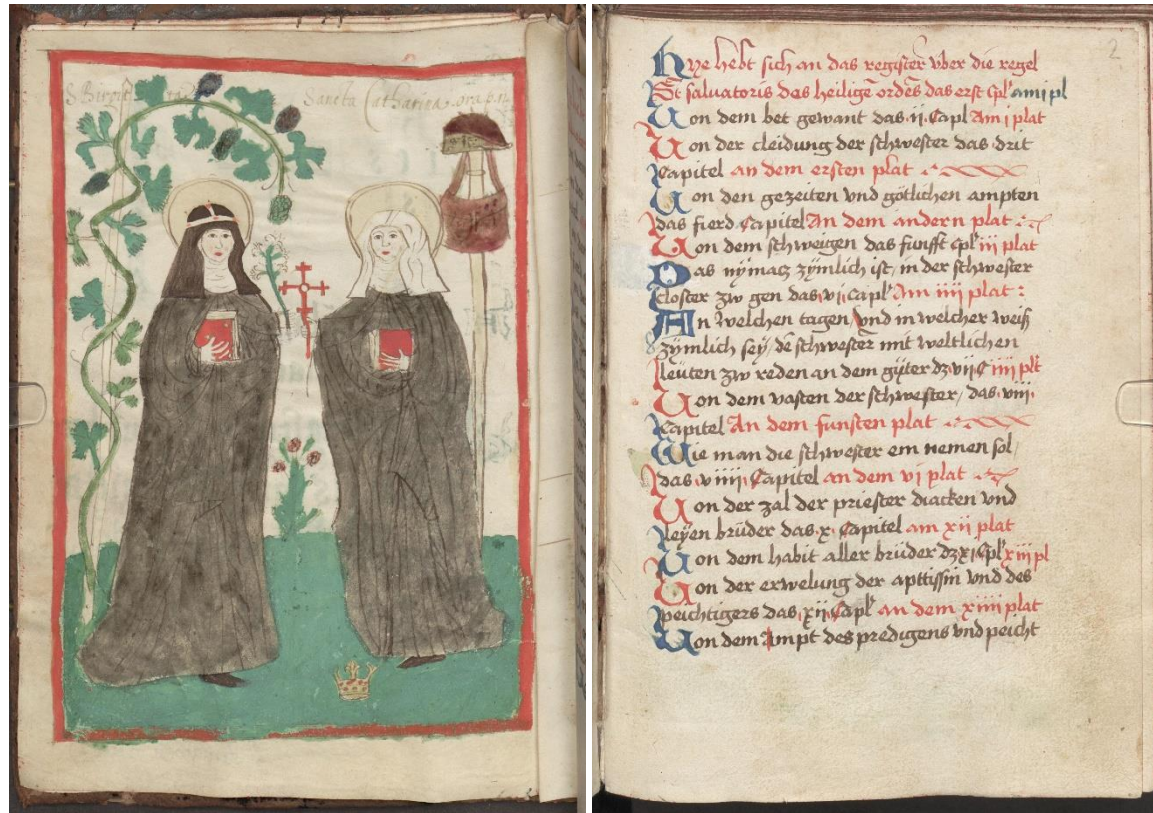 S Birgitta
Sancta Catharina. ora p. n
2
Hye hebt sich an das register vber die regel
St saluatoris des heiligē ordēs das erst cpl' am i pl
Uon dem bet gewant das .ij. Capl Am j plat
Uon der cleidung der schwester das drit
Capitel an dem ersten plat
Uon den gezeiten vnd götlichen ampten
das fierd Capitel An dem andern plat
Uon dem schweigen das funfft cpl' iij plat
Das nÿmatz zÿmlich ist, in der schwester
closter zw gen das .vi. capl' Am iiij plat :
An welchen tagen, vnd in welcher weiß
zÿmlich seÿ, dē schwester mit weltlichen
leuten zw reden an dem gÿter dz vij C iiij plt
Uon dem vasten der schwester, das .viij.
Capitel An dem funften plat
Wie man die schwester ein nemen sol,
das .viiij. Capitel an dem vi plat
Uon der zal der priester diacken vnd
leÿen brüder das .x. Capitel am xij plat
Uon dem habit aller brüder dz xi Cpl' xiij pl
Uon der erwelung der apttissin vnd des
peichtigers das .xij. Capl' an dem xiiij plat
Uon dem Ampt des predigens vnd peicht